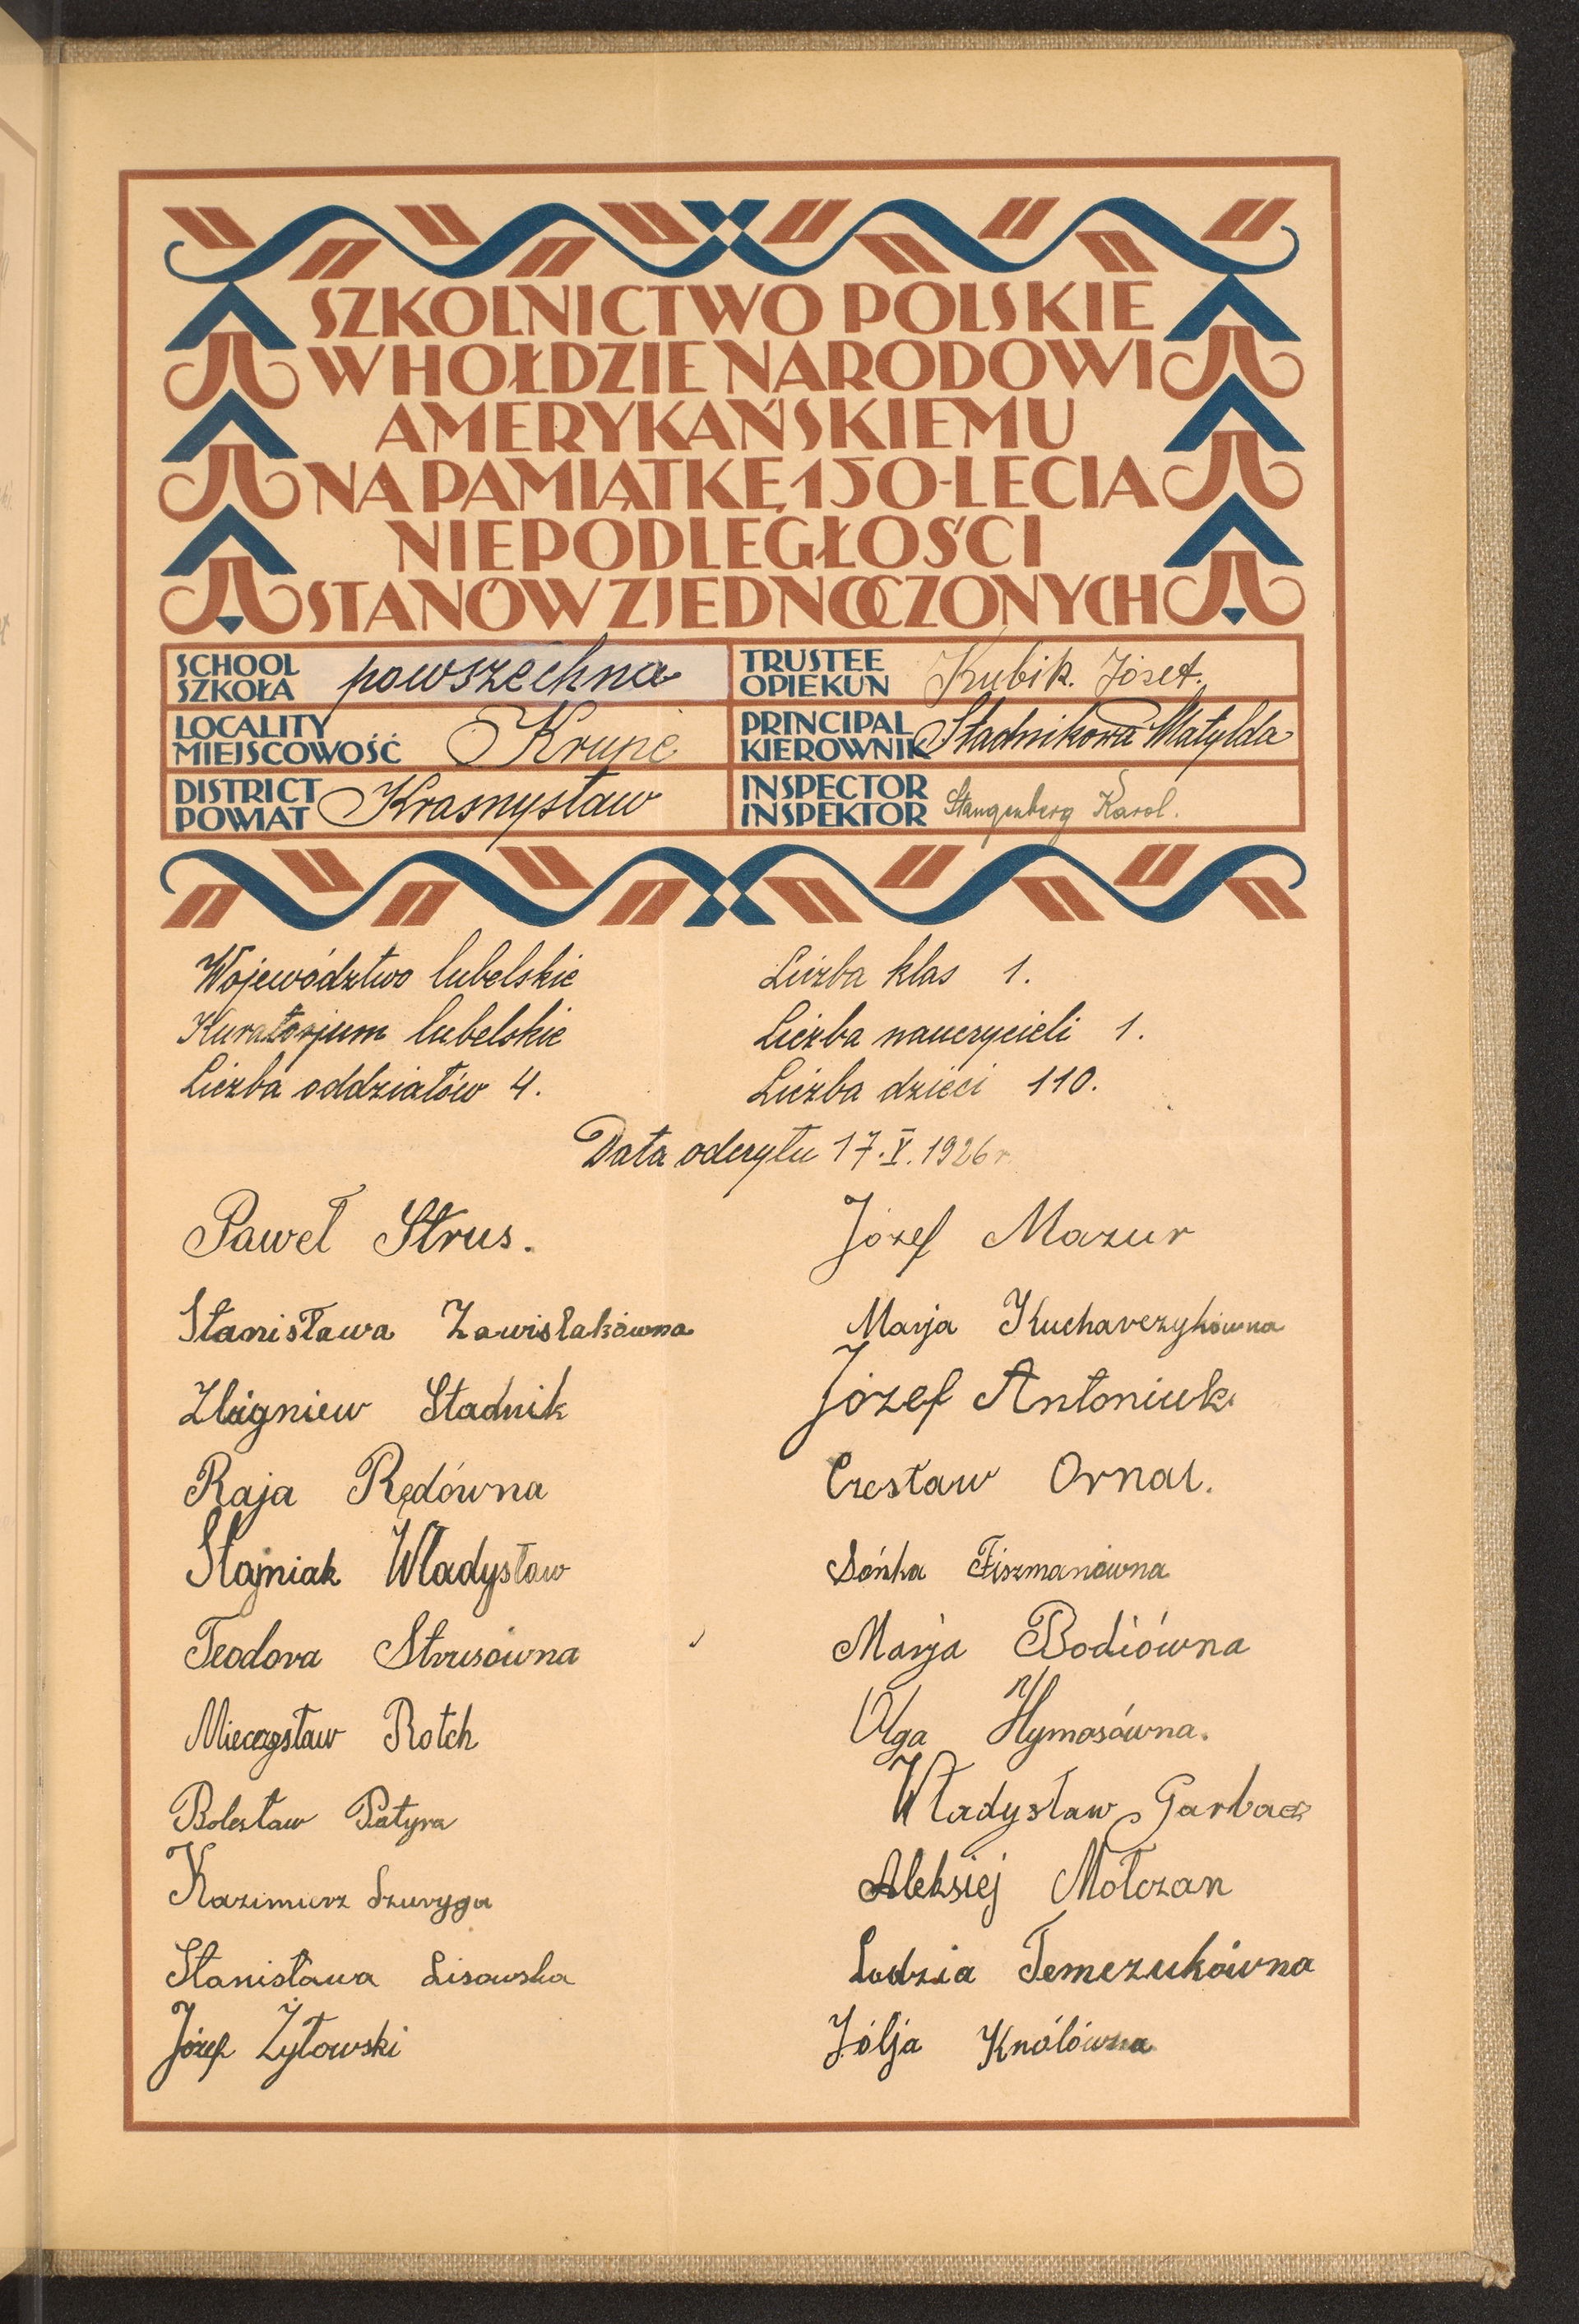 SZKOLNICTWO POLSKIE
W HOŁDZIE NARODOWI
AMERYKAŃSKIEMU
NA PAMIĄTKĘ 150-LECIA
NIEPODLEGŁOŚCI
STANÓW ZJEDNOCZONYCH
SCHOOL
SZKOŁA powszechna
TRUSTEE
OPIEKUN Kubik Józef.
LOCALITY
MIEJSCOWOŚĆ Krupe
PRINCIPAL
KIEROWNIK Stadnikowa Matylda
DISTRICT
POWIAT Krasnystaw
INSPECTOR
INSPEKTOR Stangenberg Karol.
Województwo lubelskie
Liczba klas 1.
Kuratorjum lubelskie
Liczba nauczycieli 1.
Liczba oddziałów 4.
Liczba dzieci 110.
Data odczytu 17.V.1926 r.
Paweł Strus.
Józef Mazur
Stanisława Zawiślakówna
Marja Kucharczykówna
Zbigniew Stadnik
Józef Antoniuk
Raja Rędówna
Czesław Ornal.
Stajniak Władysław
Sońka Fiszmanówna
Teodora Strusówna
Marja Bodiówna
Mieczysław Rotch
Olga Hymosówna.
Bolesław Patyra
Władysław Garbacz
Kazimierz Szuryga
Aleksiej Mołczan
Stanisława Lisowska
Lodzia Temczukówna
Józef Żytowski
Jólja Knólówna